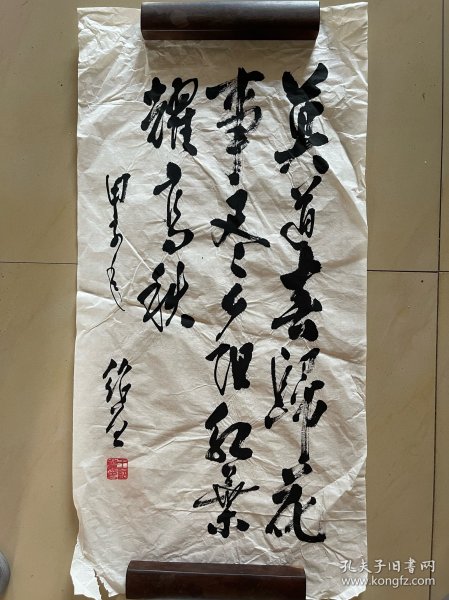 莫道春歸花
事尽夕阳红葉
耀高秋
孔夫子旧书网
www.kongfz.com